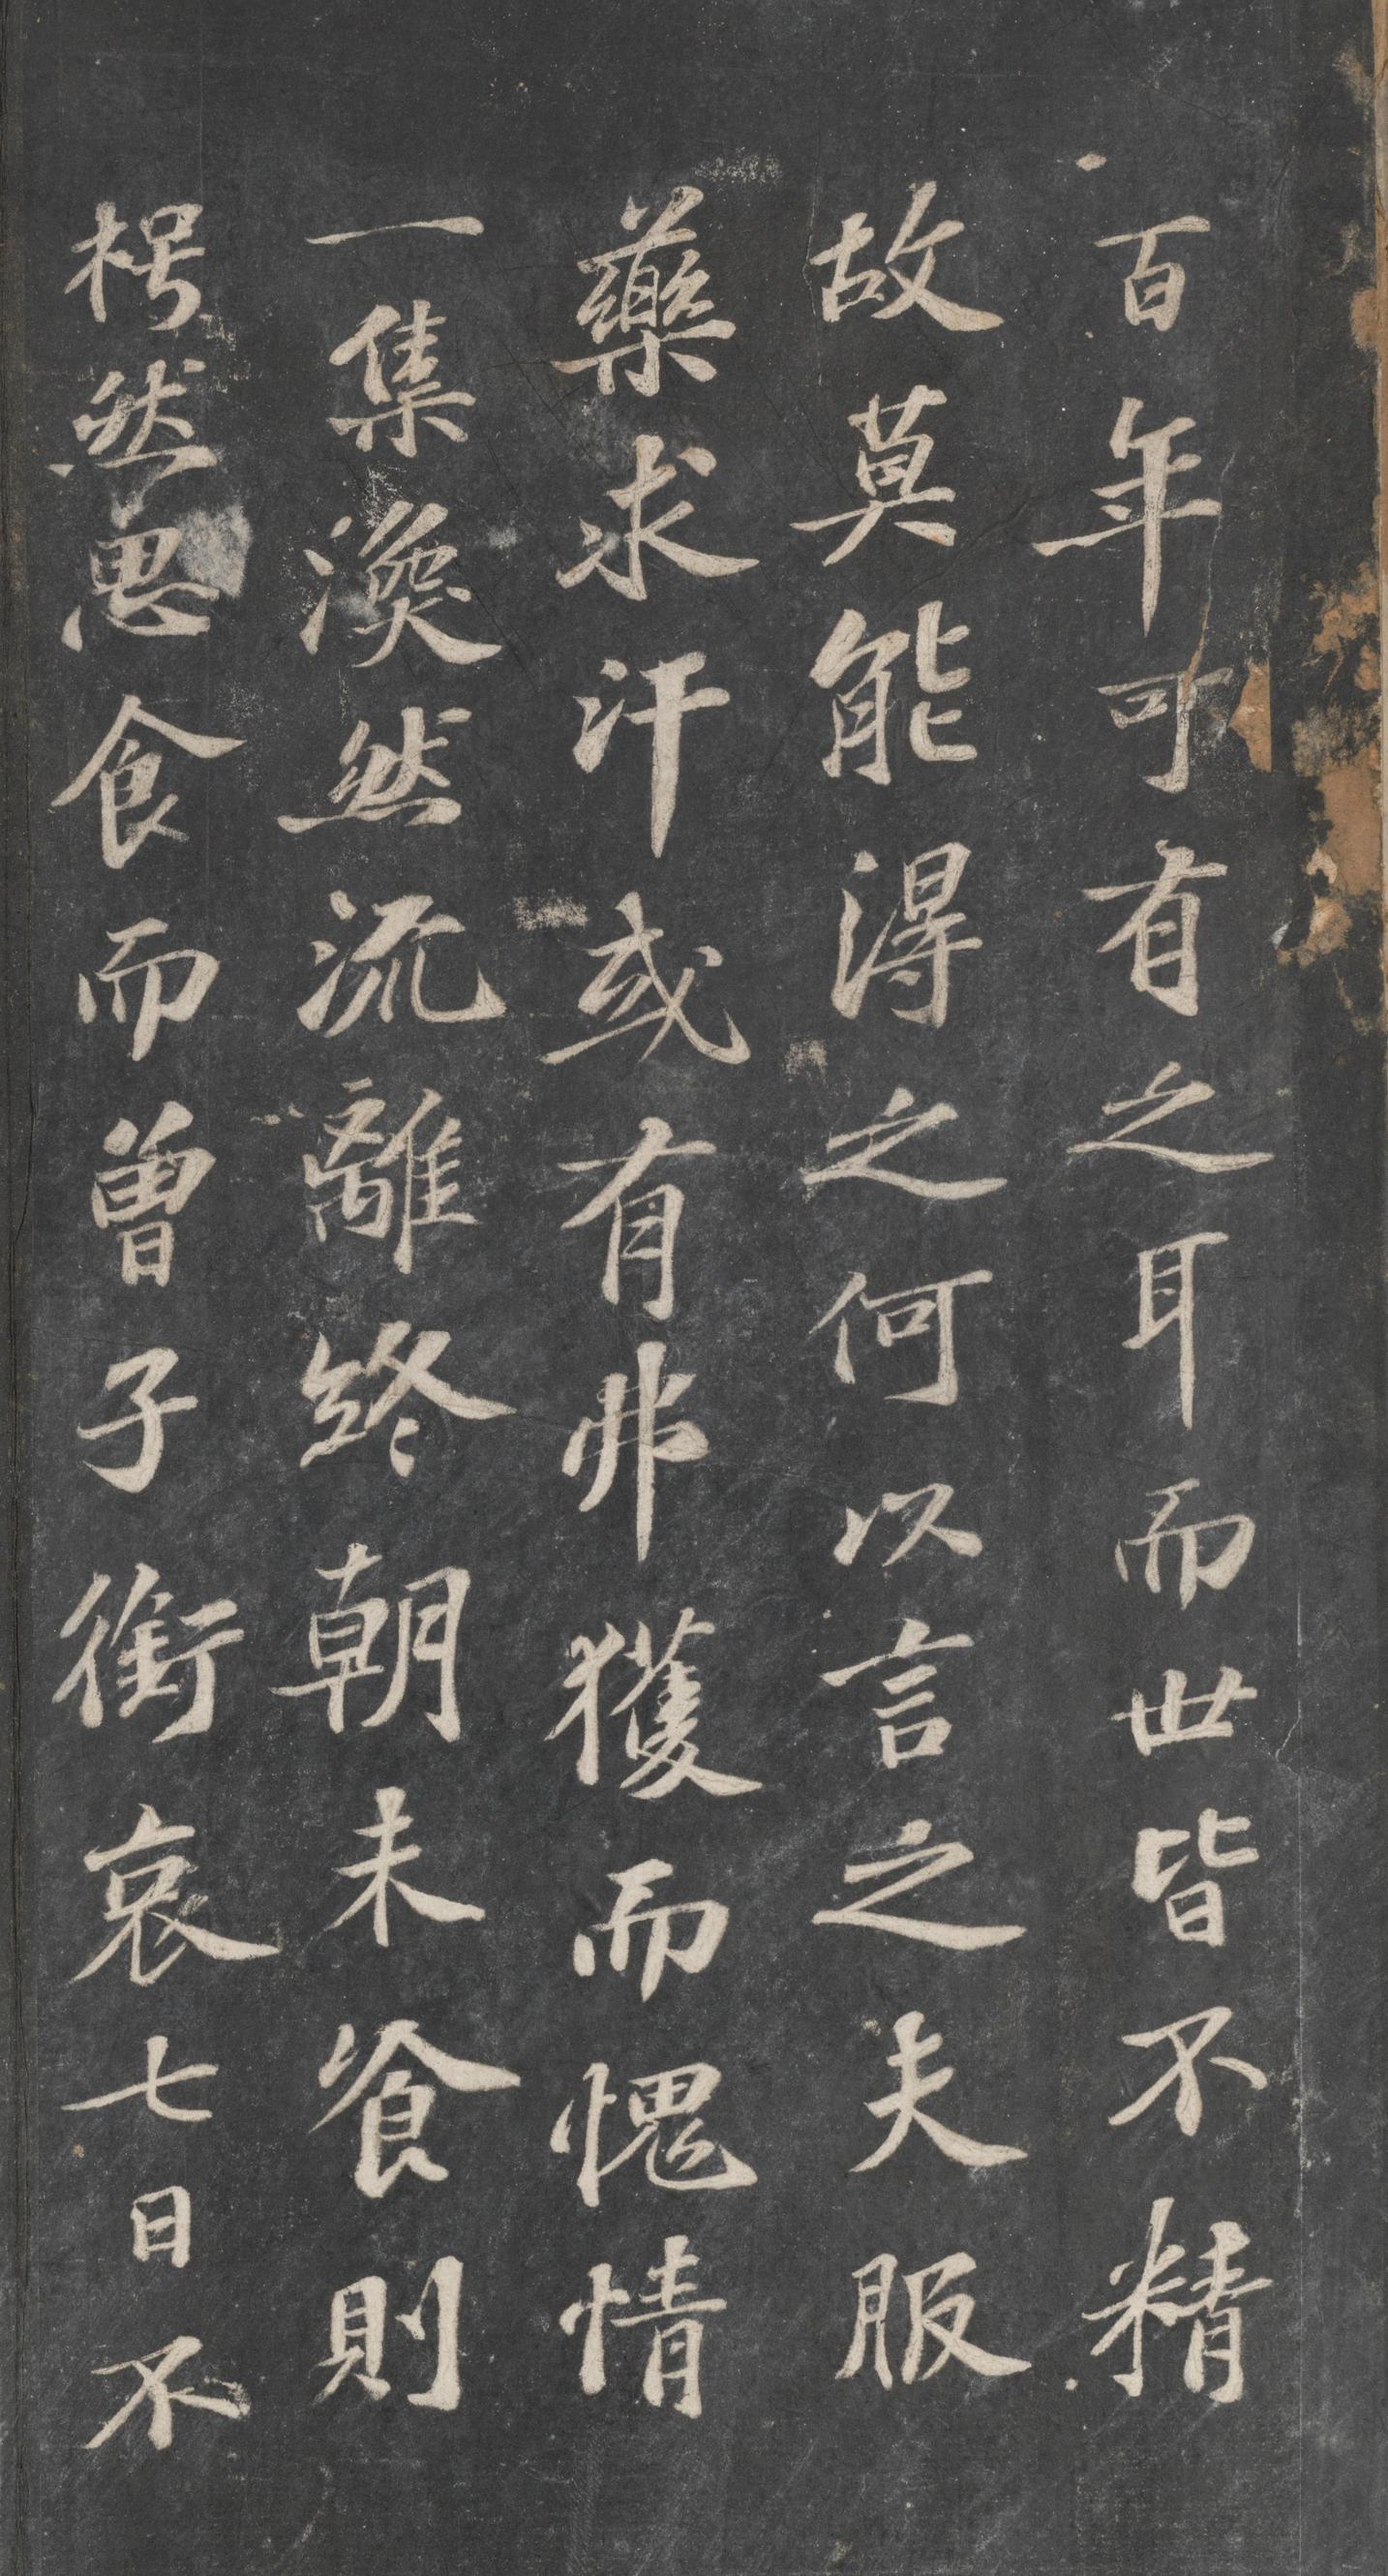 百年可有之耳而世皆不精
故莫能得之何以言之夫服
藥求汗或有弗獲而愧情
一集渙然流離終朝未飡則
枵然思食而曾子銜哀七日不